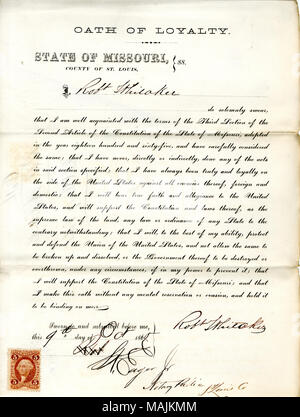 OATH OF LOYALTY.
STATE OF MISSOURI, } SS.
COUNTY OF ST. LOUIS,
I, Robt Whitaker
do solemnly swear,
that I am well acquainted with the terms of the Third Section of the
Second Article of the Constitution of the State of Missouri, adopted
in the year eighteen hundred and sixty-five, and have carefully considered
the same; that I have never, directly or indirectly, done any of the acts
in said section specified; that I have always been truly and loyally on
the side of the United States against all enemies thereof, foreign and
domestic; that I will bear true faith and allegiance to the United
States, and will support the Constitution and laws thereof as the
supreme law of the land, any law or ordinance of any State to the
contrary notwithstanding; that I will, to the best of my ability, protect
and defend the Union of the United States, and not allow the same to
be broken up and dissolved, or the Government thereof to be destroyed or
overthrown, under any circumstances, if in my power to prevent it; that I
will support the Constitution of the State of Missouri; and that
I make this oath without any mental reservation or evasion, and hold it
to be binding on me.
Robt Whitaker
Sworn to and subscribed before me,
this 9th day of Oct
Jr
Notary Public
St Louis Co
alamy
Image ID: MAJKMM
www.alamy.com